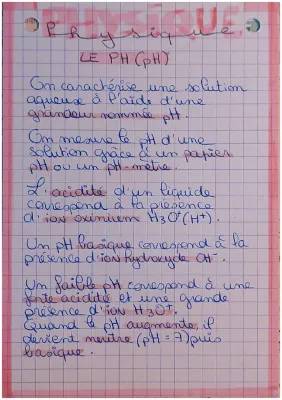 Physique
LE PH (pH)
On caractérise une solution
aqueuse à l'aide d'une
grandeur nommée pH.
On mesure le pH d'une
solution grâce à un papier
pH ou un pH-mètre.
L'acidité d'un liquide
correspond à la présence
d'ion oxinium H3O+(H+).
Un pH basique correspond à la
présence d'ion hydroxyde OH-.
Un faible pH correspond à une
forte acidité et une grande
présence d'ion H3O+.
Quand le pH augmente, il
devient neutre (pH = 7) puis
basique.